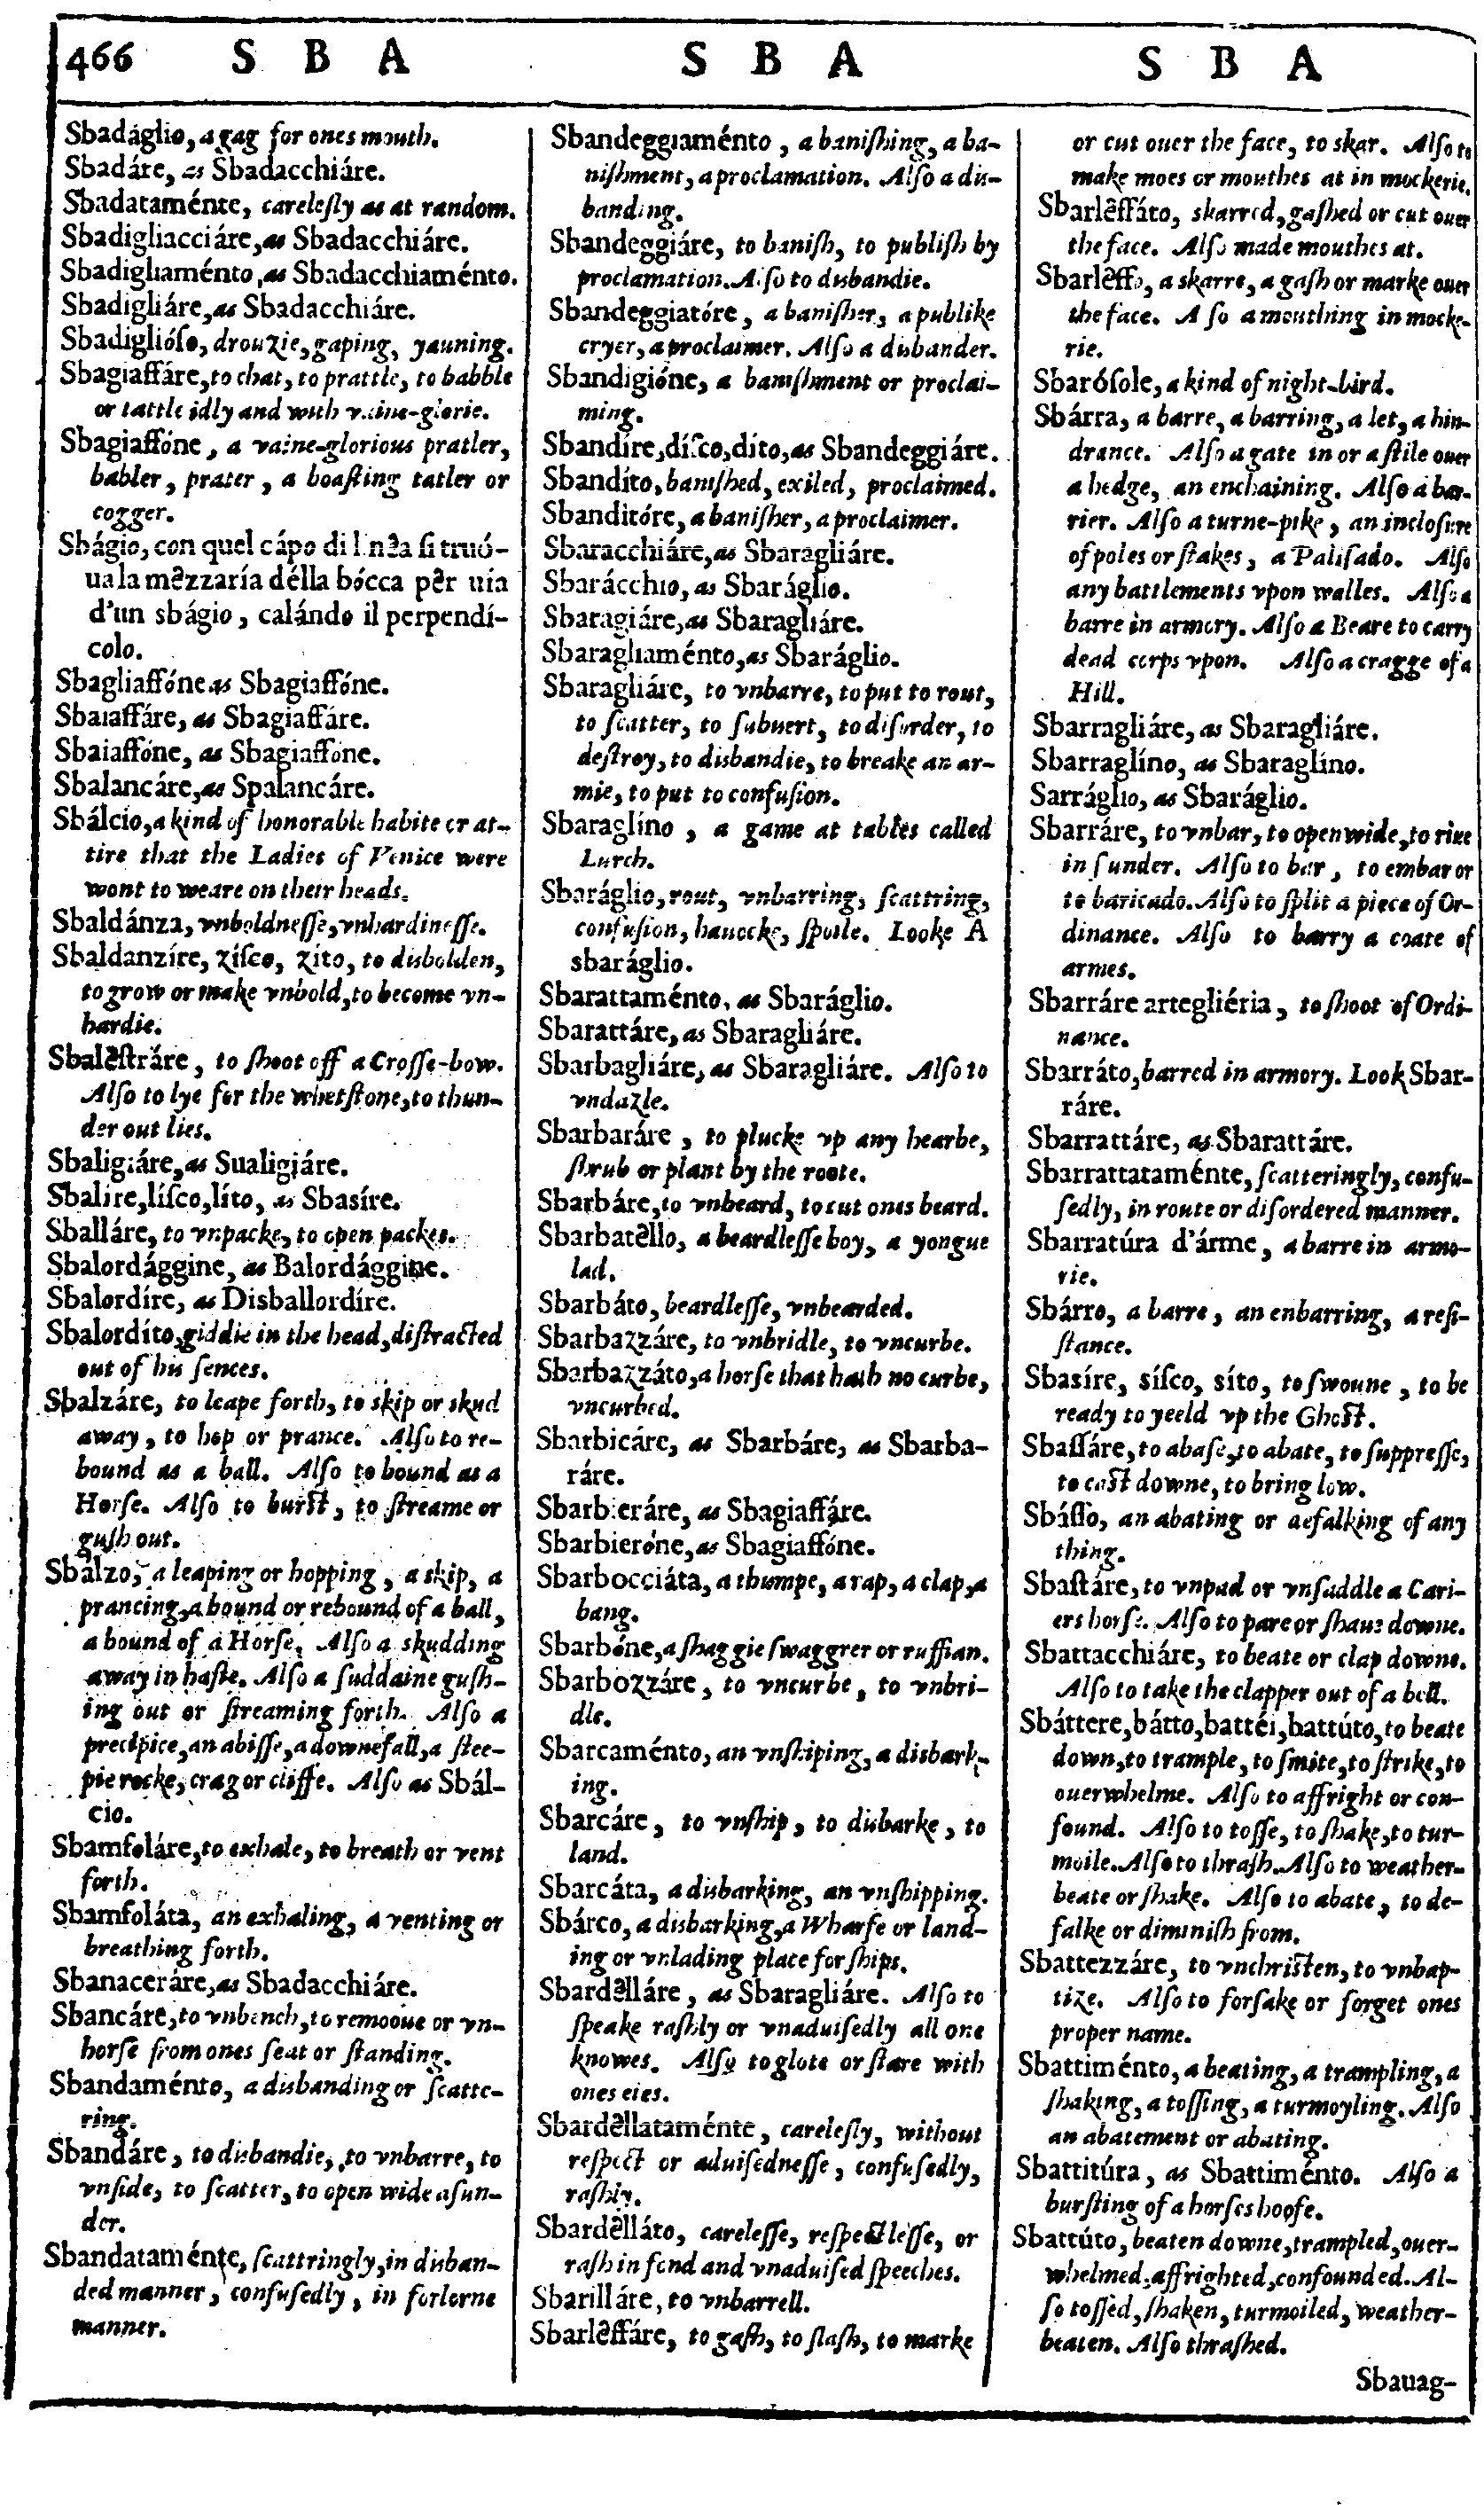 466 S B A S B A S B A
Sbadáglio, a gag for ones mouth.
Sbadáre, as Sbadacchiáre.
Sbadataménte, carelesly as at random.
Sbadigliacciáre, as Sbadacchiáre.
Sbadigliaménto, as Sbadacchiaménto.
Sbadigliáre, as Sbadacchiáre.
Sbadiglióſo, drouzie, gaping, yauning.
Sbagiaffáre, to chat, to prattle, to babble
or tattle idly and with vaine-glorie.
Sbagiaffóne, a vaine-glorious pratler,
babler, prater, a boaſting tatler or
cogger.
Sbágio, con quel cápo di linêa ſi truó-
ua la mêzzaría délla bócca pêr uía
d'un sbágio, calándo il perpendí-
colo.
Sbagliaffóne as Sbagiaffóne.
Sbaiaffáre, as Sbagiaffáre.
Sbaiaffóne, as Sbagiaffóne.
Sbalancáre, as Spalancáre.
Sbálcio, a kind of honorable habite or at-
tire that the Ladies of Venice were
wont to weare on their heads.
Sbaldánza, vnboldneſſe, vnhardineſſe.
Sbaldanzíre, zíſco, zíto, to disbolden,
to grow or make vnbold, to become vn-
hardie.
Sbalêſtráre, to ſhoot off a Croſſe-bow.
Alſo to lye for the whetſtone, to thun-
der out lies.
Sbaligiáre, as Sualigiáre.
Sbalíre, líſco, líto, as Sbasíre.
Sballáre, to vnpacke, to open packes.
Sbalordággine, as Balordággine.
Sbalordíre, as Disballordíre.
Sbalordíto, giddie in the head, diſtracted
out of his ſences.
Sbalzáre, to leape forth, to skip or skud
away, to hop or prance. Alſo to re-
bound as a ball. Alſo to bound as a
Horſe. Alſo to burſt, to ſtreame or
guſh out.
Sbálzo, a leaping or hopping, a skip, a
prancing, a bound or rebound of a ball,
a bound of a Horſe. Alſo a skudding
away in haſte. Alſo a ſuddaine guſh-
ing out or ſtreaming forth. Alſo a
precipice, an abiſſe, a downefall, a ſtee-
pie rocke, crag or cliffe. Alſo as Sbál-
cio.
Sbamfoláre, to exhale, to breath or vent
forth.
Sbamfoláta, an exhaling, a venting or
breathing forth.
Sbanaceráre, as Sbadacchiáre.
Sbancáre, to vnbench, to remooue or vn-
horſe from ones ſeat or ſtanding.
Sbandaménto, a disbanding or ſcatte-
ring.
Sbandáre, to disbandie, to vnbarre, to
vnſide, to ſcatter, to open wide aſun-
der.
Sbandataménte, ſcattringly, in disban-
ded manner, confuſedly, in forlorne
manner.
Sbandeggiaménto, a baniſhing, a ba-
niſhment, a proclamation. Alſo a dis-
banding.
Sbandeggiáre, to baniſh, to publiſh by
proclamation. Alſo to disbandie.
Sbandeggiatóre, a baniſher, a publike
cryer, a proclaimer. Alſo a disbander.
Sbandigióne, a baniſhment or proclai-
ming.
Sbandíre, díſco, díto, as Sbandeggiáre.
Sbandíto, baniſhed, exiled, proclaimed.
Sbanditóre, a baniſher, a proclaimer.
Sbaracchiáre, as Sbaragliáre.
Sbarácchio, as Sbaráglio.
Sbaragiáre, as Sbaragliáre.
Sbaragliaménto, as Sbaráglio.
Sbaragliáre, to vnbarre, to put to rout,
to ſcatter, to ſubuert, to diſorder, to
deſtroy, to disbandie, to breake an ar-
mie, to put to confuſion.
Sbaraglíno, a game at tables called
Lurch.
Sbaráglio, rout, vnbarring, ſcattring,
confuſion, hauocke, ſpoile. Looke A
sbaráglio.
Sbarattaménto, as Sbaráglio.
Sbarattáre, as Sbaragliáre.
Sbarbagliáre, as Sbaragliáre. Alſo to
vndazle.
Sbarbaráre, to plucke vp any hearbe,
ſhrub or plant by the roote.
Sbarbáre, to vnbeard, to cut ones beard.
Sbarbatêllo, a beardleſſe boy, a yongue
lad.
Sbarbáto, beardleſſe, vnbearded.
Sbarbazzáre, to vnbridle, to vncurbe.
Sbarbazzáto, a horſe that hath no curbe,
vncurbed.
Sbarbicáre, as Sbarbáre, as Sbarba-
ráre.
Sbarbieráre, as Sbagiaffáre.
Sbarbieróne, as Sbagiaffóne.
Sbarbocciáta, a thumpe, a rap, a clap, a
bang.
Sbarbóne, a ſhaggie ſwaggrer or ruffian.
Sbarbozzáre, to vncurbe, to vnbri-
dle.
Sbarcaménto, an vnſhiping, a disbark-
ing.
Sbarcáre, to vnſhip, to disbarke, to
land.
Sbarcáta, a disbarking, an vnſhipping.
Sbárco, a disbarking, a Wharfe or land-
ing or vnlading place for ſhips.
Sbardêlláre, as Sbaragliáre. Alſo to
ſpeake raſhly or vnaduiſedly all one
knowes. Alſo to glote or ſtare with
ones eies.
Sbardêllataménte, careleſly, without
reſpect or aduiſedneſſe, confuſedly,
raſhly.
Sbardêlláto, careleſſe, reſpectleſſe, or
raſh in fond and vnaduiſed ſpeeches.
Sbarilláre, to vnbarrell.
Sbarlêffáre, to gaſh, to ſlaſh, to marke
or cut ouer the face, to skar. Alſo to
make moes or mouthes at in mockerie.
Sbarlêffáto, skarred, gaſhed or cut ouer
the face. Alſo made mouthes at.
Sbarlêffo, a skarre, a gaſh or marke ouer
the face. Alſo a mouthing in mocke-
rie.
Sbaróſole, a kind of night-bird.
Sbárra, a barre, a barring, a let, a hin-
drance. Alſo a gate in or a ſtile ouer
a hedge, an enchaining. Alſo a bar-
rier. Alſo a turne-pike, an incloſure
of poles or ſtakes, a Paliſado. Alſo
any battlements vpon walles. Alſo a
barre in armory. Alſo a Beare to carry
dead corps vpon. Alſo a cragge of a
Hill.
Sbarragliáre, as Sbaragliáre.
Sbarraglíno, as Sbaraglíno.
Sarráglio, as Sbaráglio.
Sbarráre, to vnbar, to open wide, to riue
in ſunder. Alſo to bar, to embar or
to baricado. Alſo to ſplit a piece of Or-
dinance. Alſo to barry a coate of
armes.
Sbarráre artegliéria, to ſhoot of Ordi-
nance.
Sbarráto, barred in armory. Look Sbar-
ráre.
Sbarrattáre, as Sbarattáre.
Sbarrattataménte, ſcatteringly, confu-
ſedly, in route or diſordered manner.
Sbarratúra d'árme, a barre in armo-
rie.
Sbárro, a barre, an enbarring, a reſi-
ſtance.
Sbasíre, síſco, síto, to ſwoune, to be
ready to yeeld vp the Ghoſt.
Sbaſſáre, to abaſe, to abate, to ſuppreſſe,
to caſt downe, to bring low.
Sbáſſo, an abating or defalking of any
thing.
Sbaſtáre, to vnpad or vnſaddle a Cari-
ers horſe. Alſo to pare or ſhaue downe.
Sbattacchiáre, to beate or clap downe.
Alſo to take the clapper out of a bell.
Sbáttere, bátto, battéi, battúto, to beate
down, to trample, to ſmite, to ſtrike, to
ouerwhelme. Alſo to affright or con-
found. Alſo to toſſe, to ſhake, to tur-
moile. Alſo to thraſh. Alſo to weather-
beate or ſhake. Alſo to abate, to de-
falke or diminiſh from.
Sbattezzáre, to vnchriſten, to vnbap-
tize. Alſo to forſake or forget ones
proper name.
Sbattiménto, a beating, a trampling, a
ſhaking, a toſſing, a turmoyling. Alſo
an abatement or abating.
Sbattitúra, as Sbattiménto. Alſo a
burſting of a horſes hoofe.
Sbattúto, beaten downe, trampled, ouer-
whelmed, affrighted, confounded. Al-
ſo toſſed, ſhaken, turmoiled, weather-
beaten. Alſo thraſhed.
Sbauag-